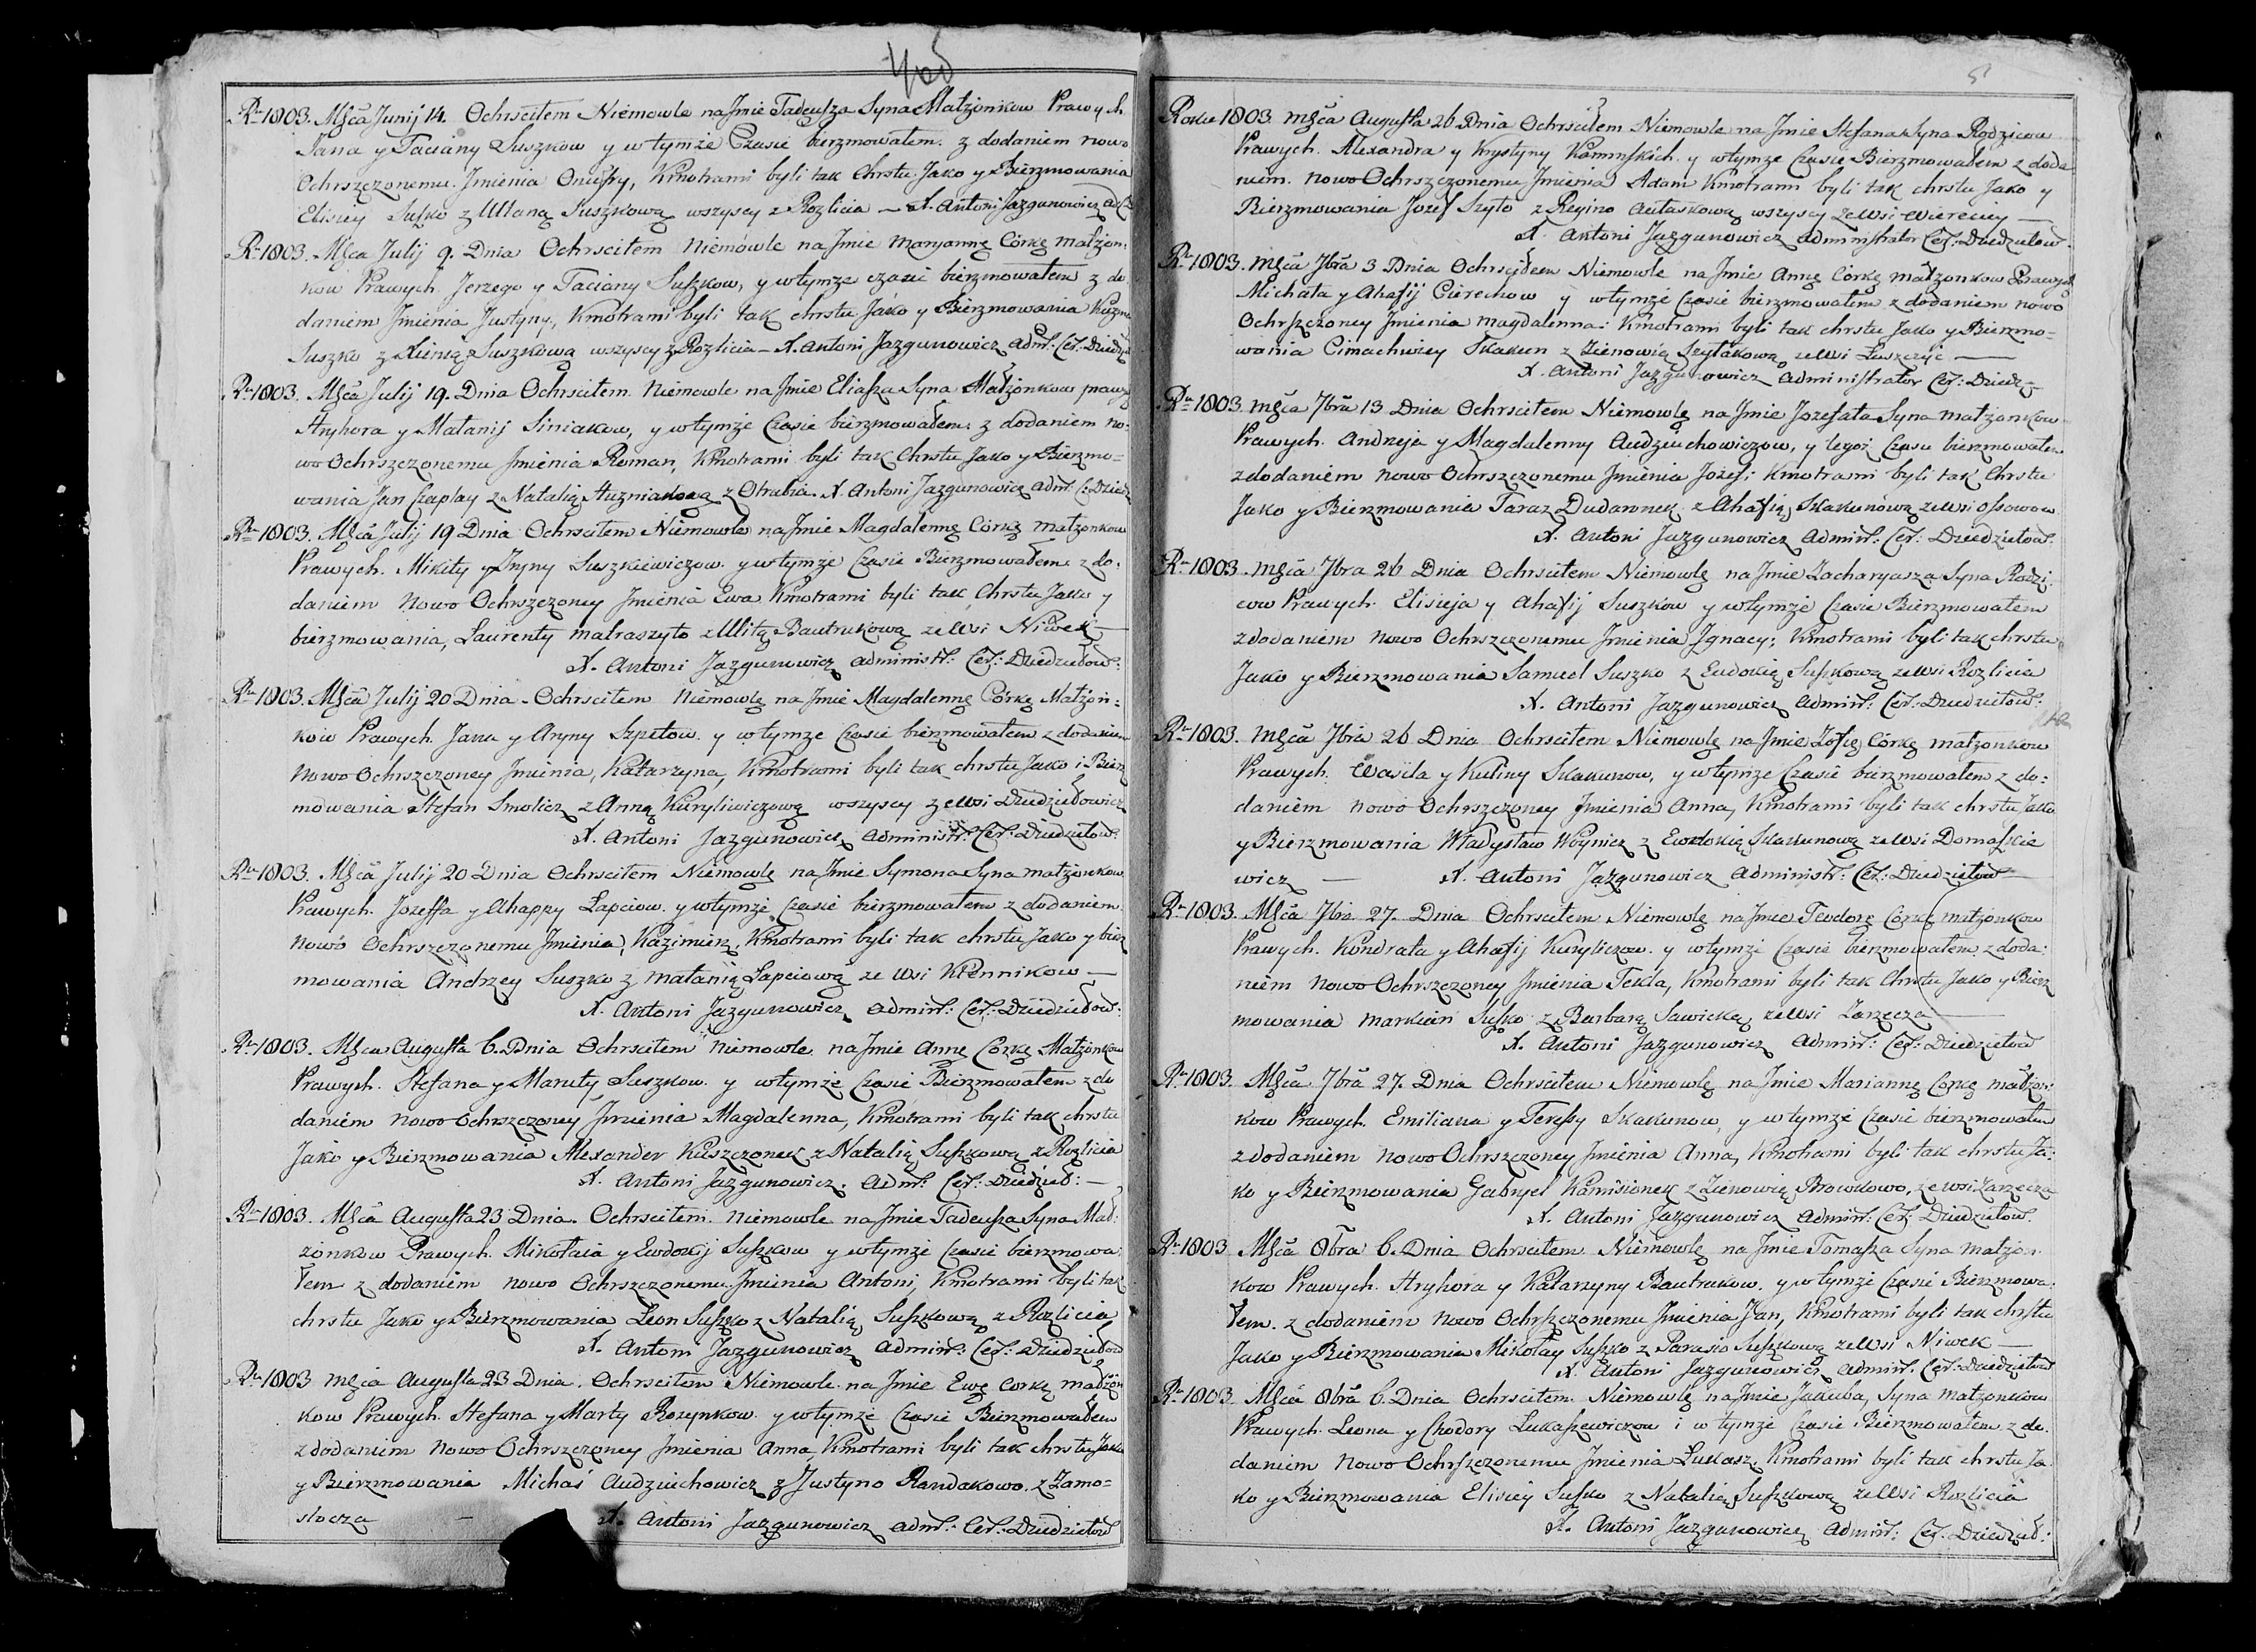 Rku 1803. Mśca Junij 14. Ochrsciłem Niemowle na Jmie Tadeusza Syna Małżonkow Prawych
Jana y Taciany Suszkow y w tymże Czasie bierzmowałem z dodaniem nowo
Ochrszczonemu Jmienia Onufry, Kmotrami byli tak Chrstu Jako y Bierzmowania
Elisiey Suszko z Ullaną Suszkową wszyscy z Rozlicia — X. Antoni Jazgunowicz
Rku 1803. Mśca Julij 9. Dnia Ochrsciłem Niemowle na Jmie Maryannę Córkę małżon:
kow Prawych Jerzego y Taciany Suszkow, y w tymże czasie bierzmowałem z do
daniem Jmienia Justyny, Kmotrami byli tak chrstu Jako y Bierzmowania Kuzma
Suszko z Xienią Suszkową wszyscy z Rozlicia — X. Antoni Jazgunowicz Adm: Cer: Dziedz
Rku 1803. Mśca Julij 19. Dnia Ochrsciłem Niemowle na Jmie Eliasza Syna Małżonkow prawy
Hryhora y Małanij Siniakow, y w tymże Czasie bierzmowałem z dodaniem no:
wo Ochrszczonemu Jmienia Roman, Kmotrami byli tak Chrstu Jako y Bierzmo=
wania Jan Czaplay z Natalią Huzniakową z Otrubia. X. Antoni Jazgunowicz Adm: C: Dziedz
Rku 1803. Mśca Julij 19 Dnia Ochrsciłem Niemowle na Jmie Magdalennę Córkę małżonkow
Prawych Mikity y Jryny Suszkiewiczow y w tymże Czasie Bierzmowałem z do:
daniem Nowo Ochrszczoney Jmienia Ewa Kmotrami byli tak Chrstu Jako y
bierzmowania, Laurenty Matraszyło z Ulitą Bautrukową ze Wsi Niwek —
X. Antoni Jazgunowicz administr: Cer: Dziedziełow:
Rku 1803. Mśca Julij 20 Dnia Ochrsciłem Niemowlę na Jmie Magdalennę Córkę Małżon:
kow Prawych Jana y Aryny Szpetow y w tymże Czasie bierzmowałem z dodaniem
Nowo Ochrszczoney Jmienia, Katarzyna, Kmotrami byli tak chrstu Jako i Bierz
mowania Stefan Smolicz z Anną Kuryliwiczową wszyscy ze Wsi Dziedziełowicz
X. Antoni Jazgunowicz Administr: Cer: Dziedziełow:
Rku 1803. Mśca Julij 20 Dnia Ochrsciłem Niemowlę na Jmie Symona Syna małżonkow
Prawych Jozeffa y Ahappy Łapciow y w tymże Czasie bierzmowałem z dodaniem
Nowo Ochrszczonemu Jmienia, Kazimierz, Kmotrami byli tak chrstu Jako y bierz
mowania Andrzey Suszko z Małanią Łapciową ze Wsi Klennikow —
X. Antoni Jazgunowicz Admin: Cer: Dziedziełow:
Rku 1803. Mśca Augusta 6. Dnia Ochrsciłem Niemowle na Jmie Annę Córkę Małżonkow
Prawych Stefana y Maruty Suszkow y w tymże Czasie Bierzmowałem z do
daniem nowo Ochrszczoney Jmienia Magdalenna, Kmotrami byli tak chrstu
Jako y Bierzmowania Alexander Kuszczonek z Natalią Suszkową z Rozlicia
X. Antoni Jazgunowicz. Adm: Cer: Dziedzieł: —
Rku 1803. Mśca Augusta 23 Dnia. Ochrsciłem Niemowle na Jmie Tadeusza Syna Mał:
żonkow Prawych Mikołaia y Ewdokij Suszkow y w tymże Czasie bierzmowa
łem z dodaniem nowo Ochrszczonemu Jmienia Antoni, Kmotrami byli tak
chrstu Jako y Bierzmowania Leon Suszko z Natalią Suszkową z Rozlicia
X. Antoni Jazgunowicz Admin: Cer: Dziedziełow
Rku 1803 Mśca Augusta 23 Dnia. Ochrsciłem Niemowle na Jmie Ewę Corkę małżon
kow Prawych Stefana y Marty Rozynkow y w tymże Czasie Bierzmowałem
z dodaniem Nowo Ochrszczoney Jmienia Anna, Kmotrami byli tak chrstu Jako
y Bierzmowania Michaś Audziuchowicz z Justyno Randakowo z Zamo=
stocza — X. Antoni Jazgunowicz Adm: Cer: Dziedziełow
Roku 1803. Mśca Augusta 26 Dnia Ochrsciłem Niemowle na Jmie Stefana Syna Rodzicow
Prawych Alexandra y Krystyny Kaminskich y w tymże Czasie Bierzmowałem z doda
niem nowo Ochrszczonemu Jmienia Adam Kmotrami byli tak chrstu Jako y
Bierzmowania Jozef Szyto z Regino Antaskową wszyscy ze Wsi Wiereciey —
X. Antoni Jazgunowicz administrator Cer: Dziedziełow
Rku 1803. Mśca 7bra 3 Dnia Ochrsciłem Niemowle na Jmie Annę Córkę małżonkow Prawych
Michała y Ahafij Cierechow y w tymże Czasie bierzmowałem z dodaniem nowo
Ochrszczoney Jmienia Magdalenna: Kmotrami byli tak chrstu Jako y Bierzmo=
wania Cimachwiey Skakun z Zienowią Szyłakową ze Wsi Łuszczyc —
X. Antoni Jazgunowicz administrator Cer: Dziedz
Rku 1803. Mśca 7bra 13 Dnia Ochrsciłem Niemowlę na Jmie Jozefata Syna małżonkow
Prawych Andreja y Magdalenny Audziuchowiczow, y tegoż Czasu bierzmowałem
z dodaniem nowo Ochrszczonemu Jmienia Jozef; Kmotrami byli tak Chrstu
Jako y Bierzmowania Taraz Dudaronek z Ahafią Skakunową ze Wsi Ossowow
X. Antoni Jazgunowicz Admin: Cer: Dziedziełow:
Rku 1803. Mśca 7bra 26 Dnia Ochrsciłem Niemowlę na Jmie Zacharyasza Syna Rodzi:
cow Prawych Elisieja y Ahafij Suszkow y w tymże Czasie Bierzmowałem
z dodaniem nowo Ochrszczonemu Jmienia Jgnacy; Kmotrami byli tak chrstu
Jako y Bierzmowania Samuel Suszko z Eudokią Suszkową ze Wsi Rozlicia
X. Antoni Jazgunowicz Admin: Cer: Dziedziełow:
Rku 1803. Mśca 7bra 26 Dnia Ochrsciłem Niemowlę na Jmie Zofię Córkę małżonkow
Prawych Wasila y Kuliny Skakunow, y w tymże Czasie bierzmowałem z do:
daniem nowo Ochrszczoney Jmienia Anna, Kmotrami byli tak chrstu Jako
y Bierzmowania Władysław Woynicz z Ewdokią Skakunową ze Wsi Domaszkie
wicz — X. Antoni Jazgunowicz Administr: Cer: Dziedziełow
Rku 1803. Mśca 7bra 27. Dnia Ochrsciłem Niemowlę na Jmie Teodorę Córkę małżonkow
Prawych Kondrata y Ahafij Kuryliczow y w tymże Czasie bierzmowałem z doda:
niem nowo Ochrszczoney Jmienia Tekla, Kmotrami byli tak Chrstu Jako y Bierz
mowania Markian Suszko z Barbarą Sawicką ze Wsi Zarzecza —
X. Antoni Jazgunowicz Admin: Cer: Dziedziełow
Rku 1803. Mśca 7bra 27. Dnia Ochrsciłem Niemowlę na Jmie Mariannę Corkę małżon:
kow Prawych Emiliana y Teressy Skakunow, y w tymże Czasie bierzmowałem
z dodaniem nowo Ochrszczoney Jmienia Anna, Kmotrami byli tak chrstu Ja:
ko y Bierzmowania Gabryel Kamisionek z Zienowią Browkowo, ze wsi Zarzecza
X. Antoni Jazgunowicz Admin: Cer: Dziedziełow.
Rku 1803 Mśca 8bra 6. Dnia Ochrsciłem Niemowlę na Jmie Tomasza Syna małżon
kow Prawych Hryhora y Katarzyny Bautrukow, y w tymże Czasie Bierzmowa:
łem z dodaniem nowo Ochrszczonemu Jmienia Jan, Kmotrami byli tak chrstu
Jako y Bierzmowania Mikołay Suszko z Parasio Suszkową ze Wsi Niwek —
X. Antoni Jazgunowicz Admin: Cer: Dziedziełow
Rku 1803. Mśca 8bra 6. Dnia Ochrsciłem Niemowlę na Jmie Jakuba, Syna małżonkow
Prawych Leona y Chodory Łukaszewiczow i w tymże Czasie Bierzmowałem z do:
daniem Nowo Ochrszczonemu Jmienia Łukasz, Kmotrami byli tak chrstu Ja
ko y Bierzmowania Elisiey Suszko z Natalią Suszkową ze Wsi Rozlicia
X. Antoni Jazgunowicz Admin: Cer: Dziedzieł: